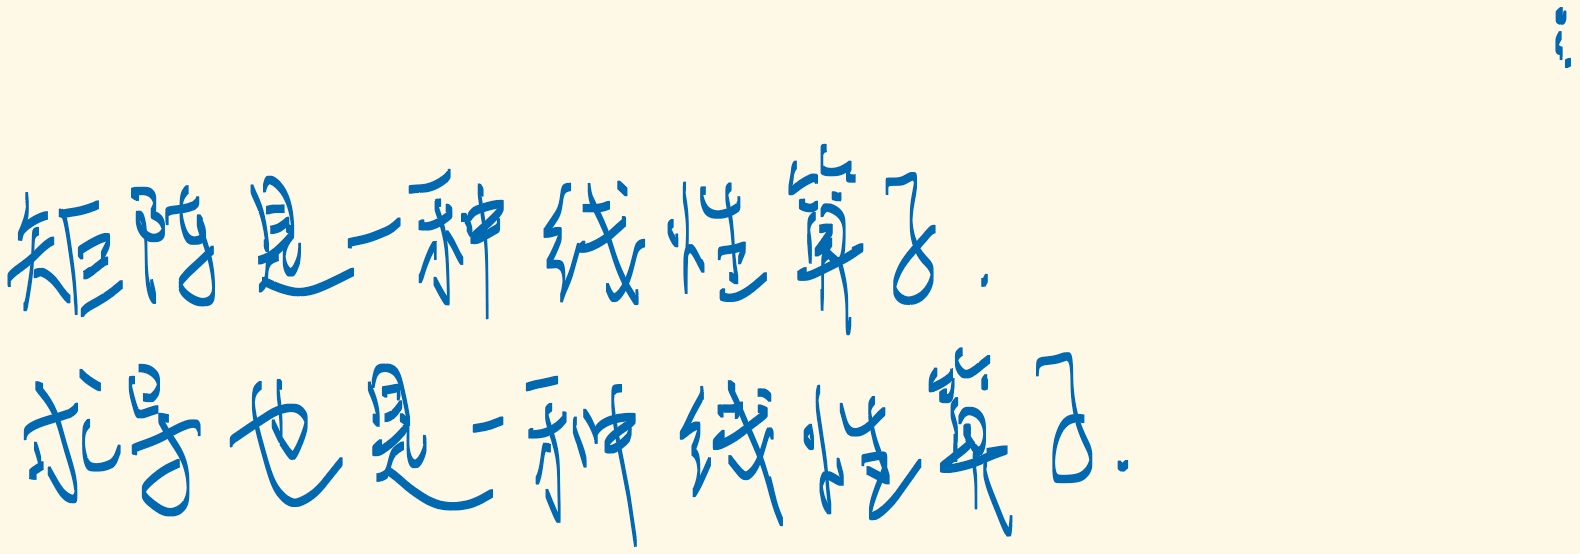 矩阵是一种线性算子.
求导也是一种线性算子.